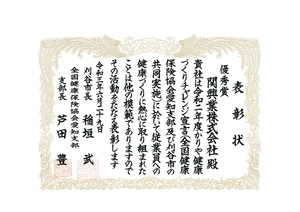 表彰状
優秀賞
関興業株式会社 殿
貴社は令和二年度かりや健康
づくりチャレンジ宣言全国健康
保険協会愛知支部及び刈谷市の
共同実施に於いて従業員への
健康づくりに熱心に取り組まれた
ことは他の模範でありますので
その活動をたたえ表彰します
令和三年六月二十九日
刈谷市長 稲垣 武
全国健康保険協会愛知支部
支部長 芦田 豊